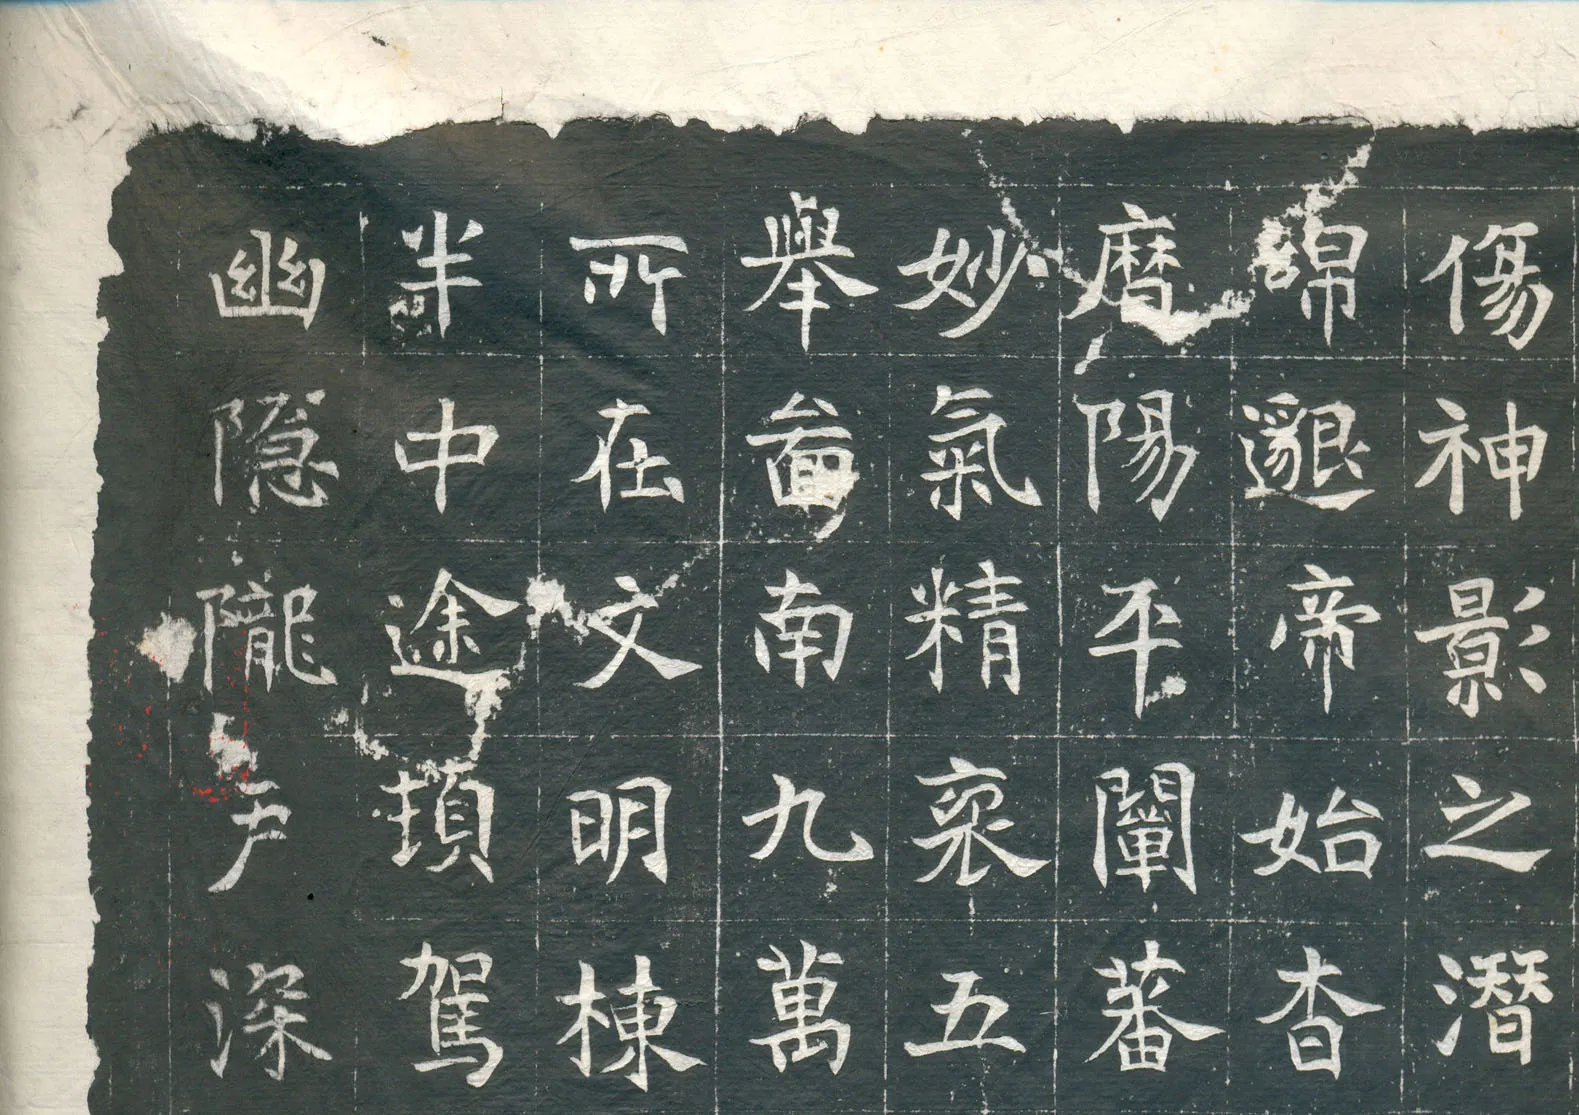 傷神影之潛
綿邈帝始杳
磨陽平闡蕃
妙氣精裒五
舉啚南九萬
所在文明棟
半中途頓駕
幽隱隴戶深